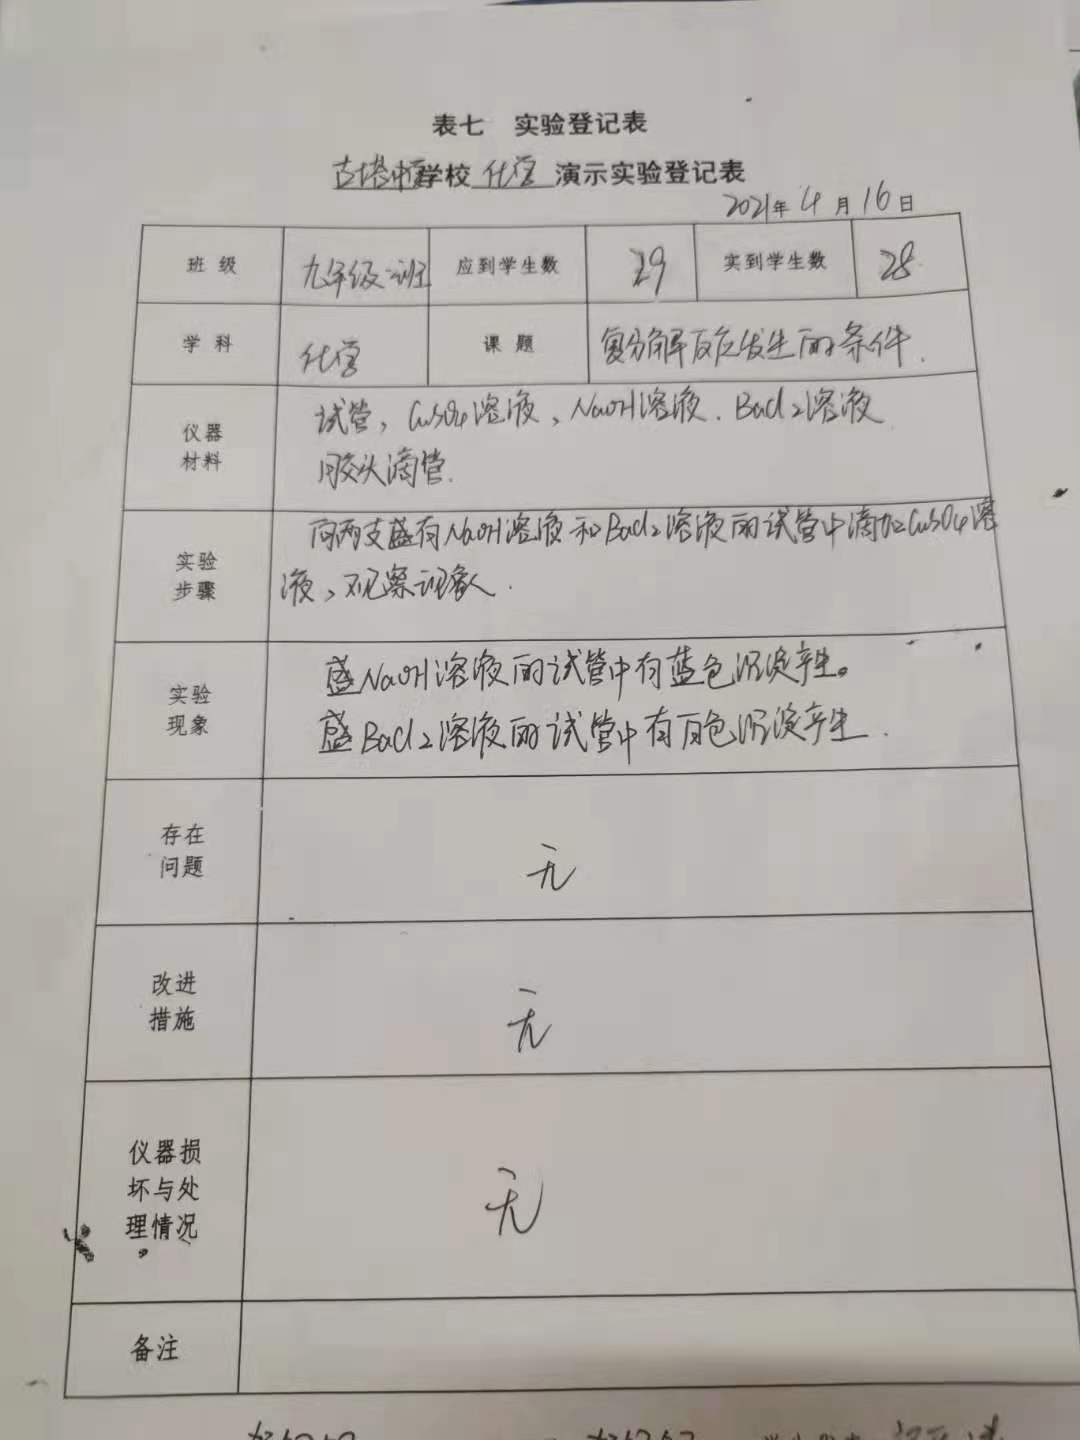 表七 实验登记表
古塔中学校 化学 演示实验登记表
2021年 4 月 16 日
班 级 九年级二班 应到学生数 29 实到学生数 28
学 科 化学 课 题 复分解反应发生的条件.
仪器
材料
试管, CuSO4溶液、NaOH溶液. BaCl2溶液
胶头滴管.
实验
步骤
向两支盛有NaOH溶液和BaCl2溶液的试管中滴加CuSO4溶
液,观察现象.
实验
现象
盛NaOH溶液的试管中有蓝色沉淀产生。
盛BaCl2溶液的试管中有白色沉淀产生.
存在
问题
无
改进
措施
无
仪器损
坏与处
理情况
无
备注